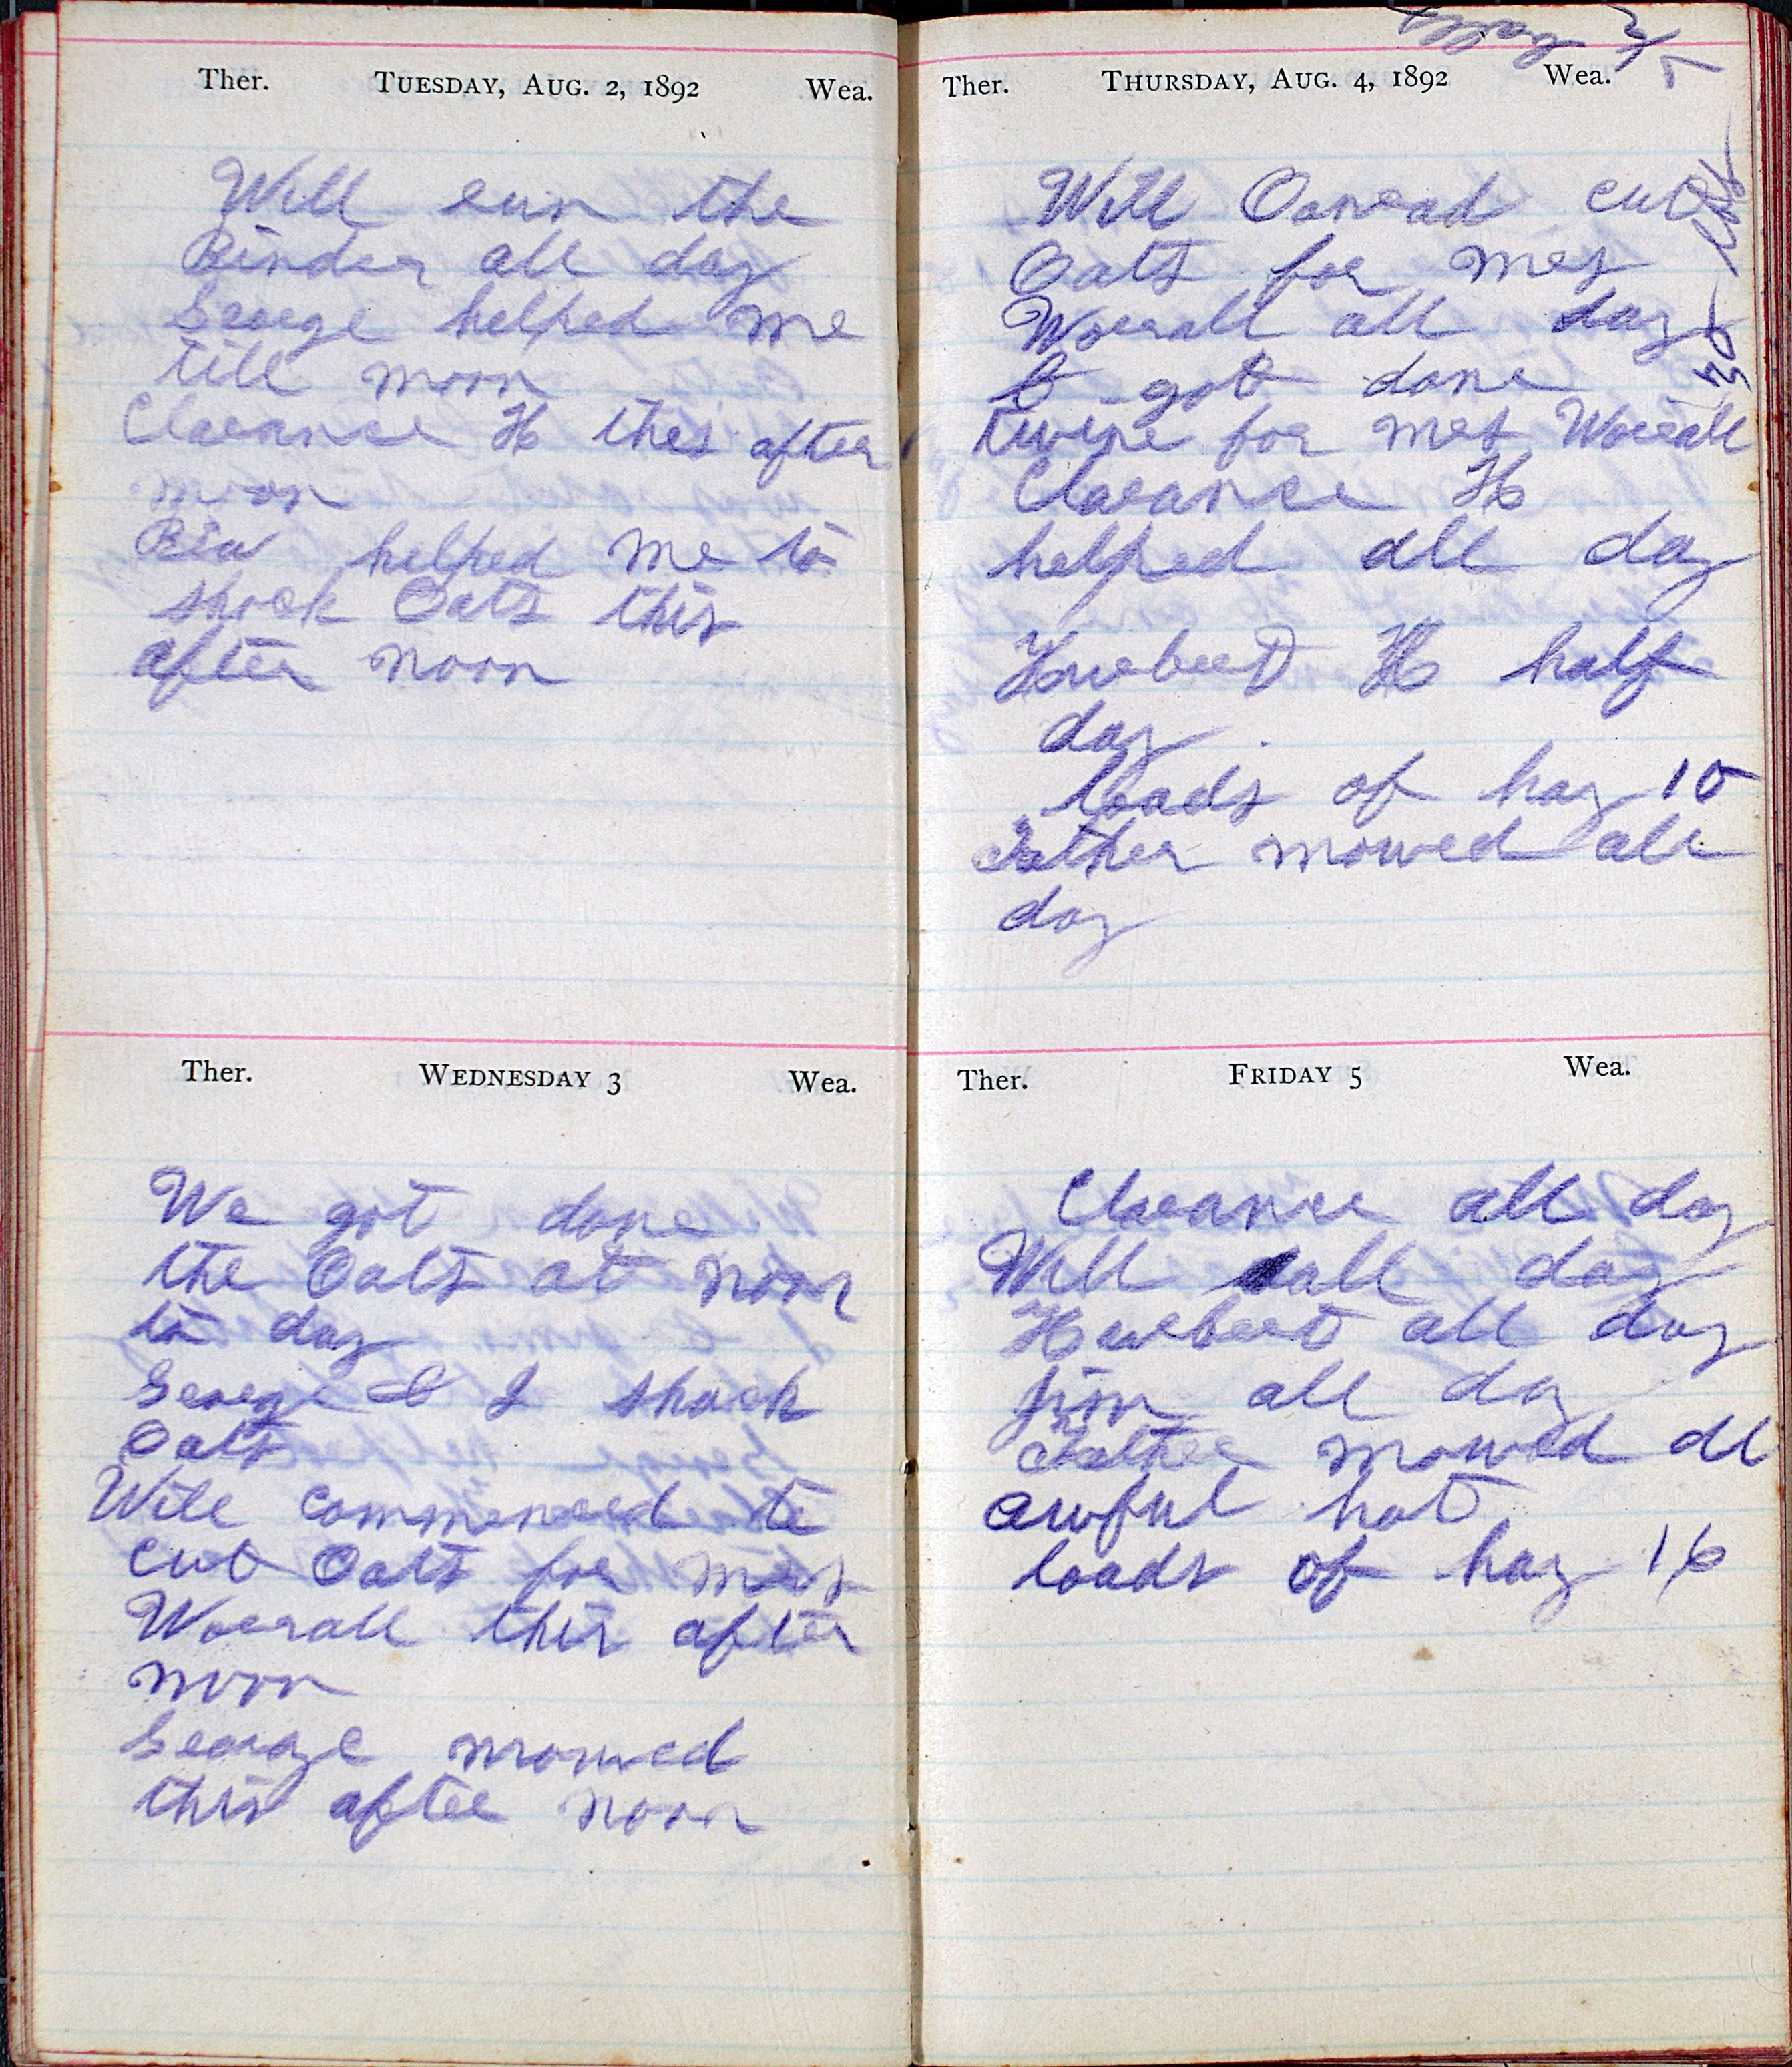 Ther. TUESDAY, AUG. 2, 1892 Wea.
Will run the
Binder all day
George helped me
till noon
Clarance H this after
noon
helped me to
shock Oats this
after noon
Ther. WEDNESDAY 3 Wea.
We got done
the Oats at noon
to day
George & I shock
Oats
Will commenced to
cut Oats for mrs
Worrall this after
noon
George mowed
this after noon
Ther. THURSDAY, AUG. 4, 1892 Wea.
Will Conrad cut
Oats for mrs
Worrall all day
& got done
twine for mrs Worrall
Clarance H
helped all day
Hurbert H half
day
loads of hay 10
Father mowed all
day
Ther. FRIDAY 5 Wea.
Clarance all day
Will all day
Hurbert all day
Jim all day
Father mowed all
awful hot
loads of hay 16